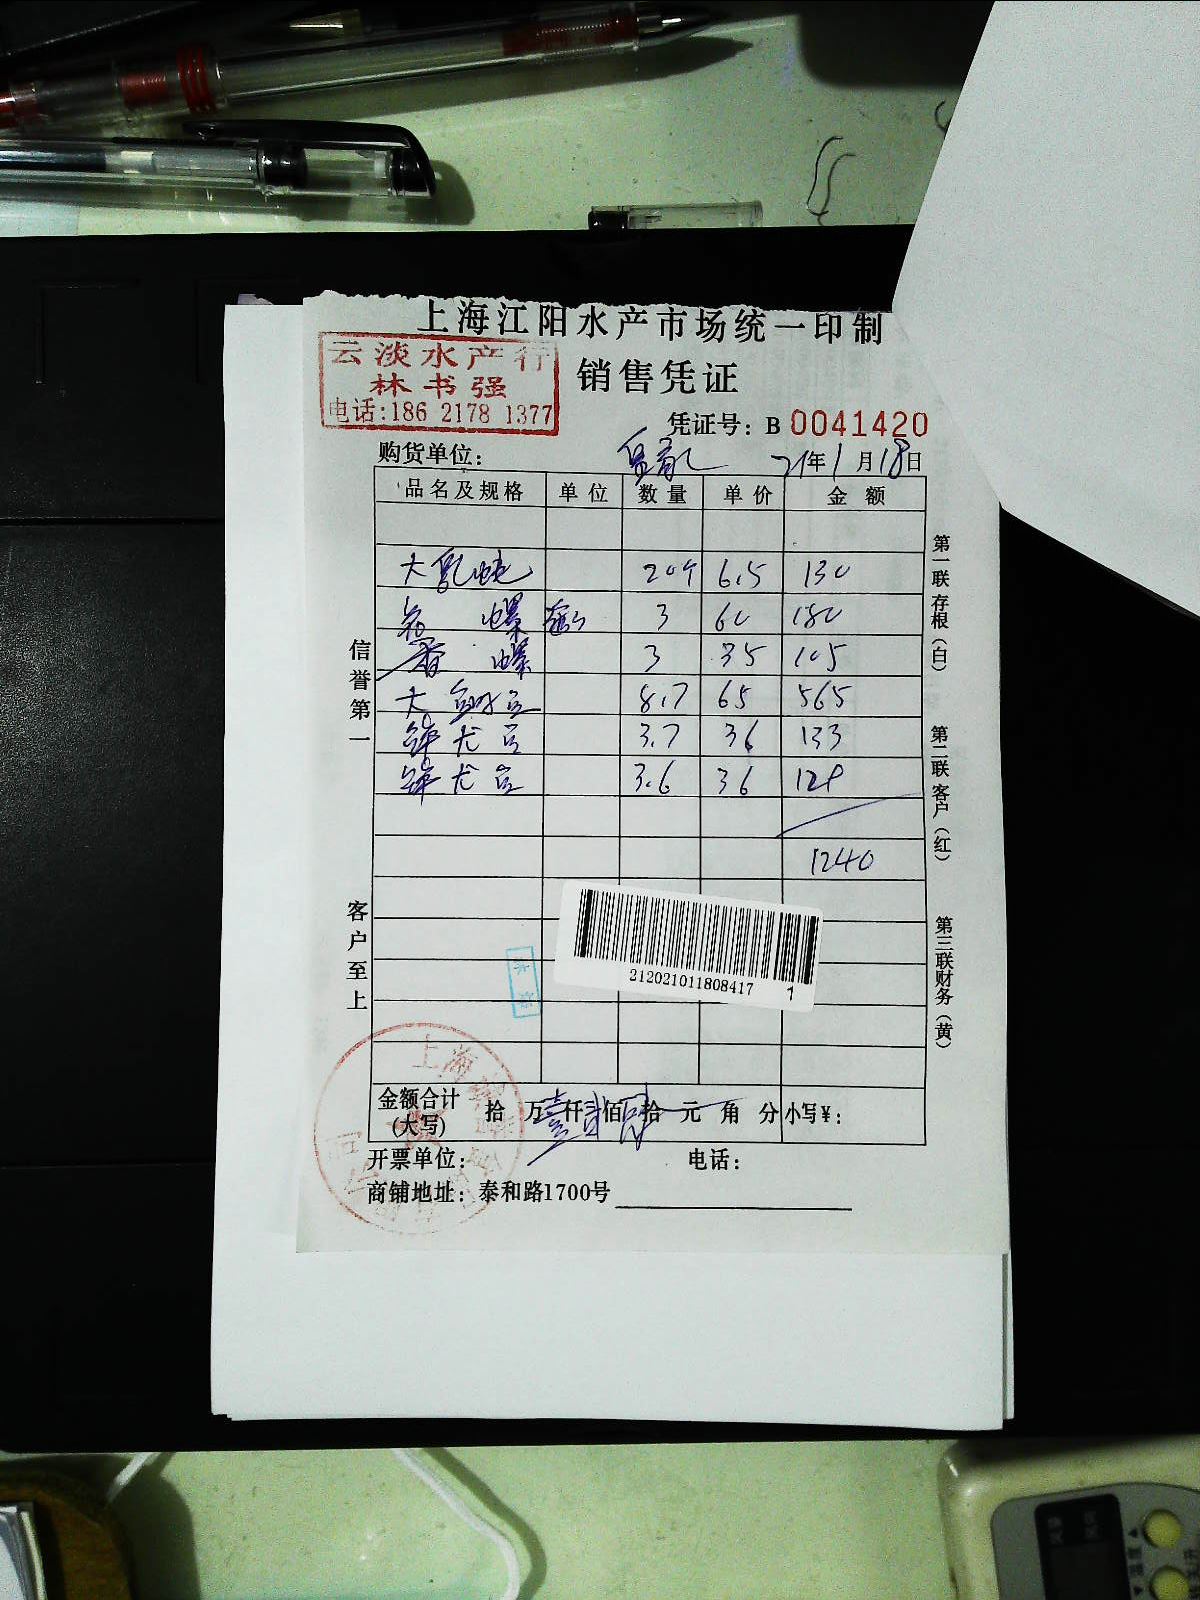 上海江阳水产市场统一印制
云淡水产行
林书强
电话:186 2178 1377
销售凭证
凭证号: B 0041420
购货单位: 21年1月18日
品名及规格 单位 数量 单价 金额
大 6.5 130
螺 3 60 180
香 螺 3 35 105
大 8.7 65 565
龙 3.7 36 133
龙 3.6 36 129
1240
信誉第一
客户至上
第一联存根(白)
第二联客户(红)
第三联财务(黄)
212021011808417 1
金额合计(大写) 拾 万壹仟贰佰肆拾 元 角 分 小写¥:
开票单位: 电话:
商铺地址: 泰和路1700号
上海